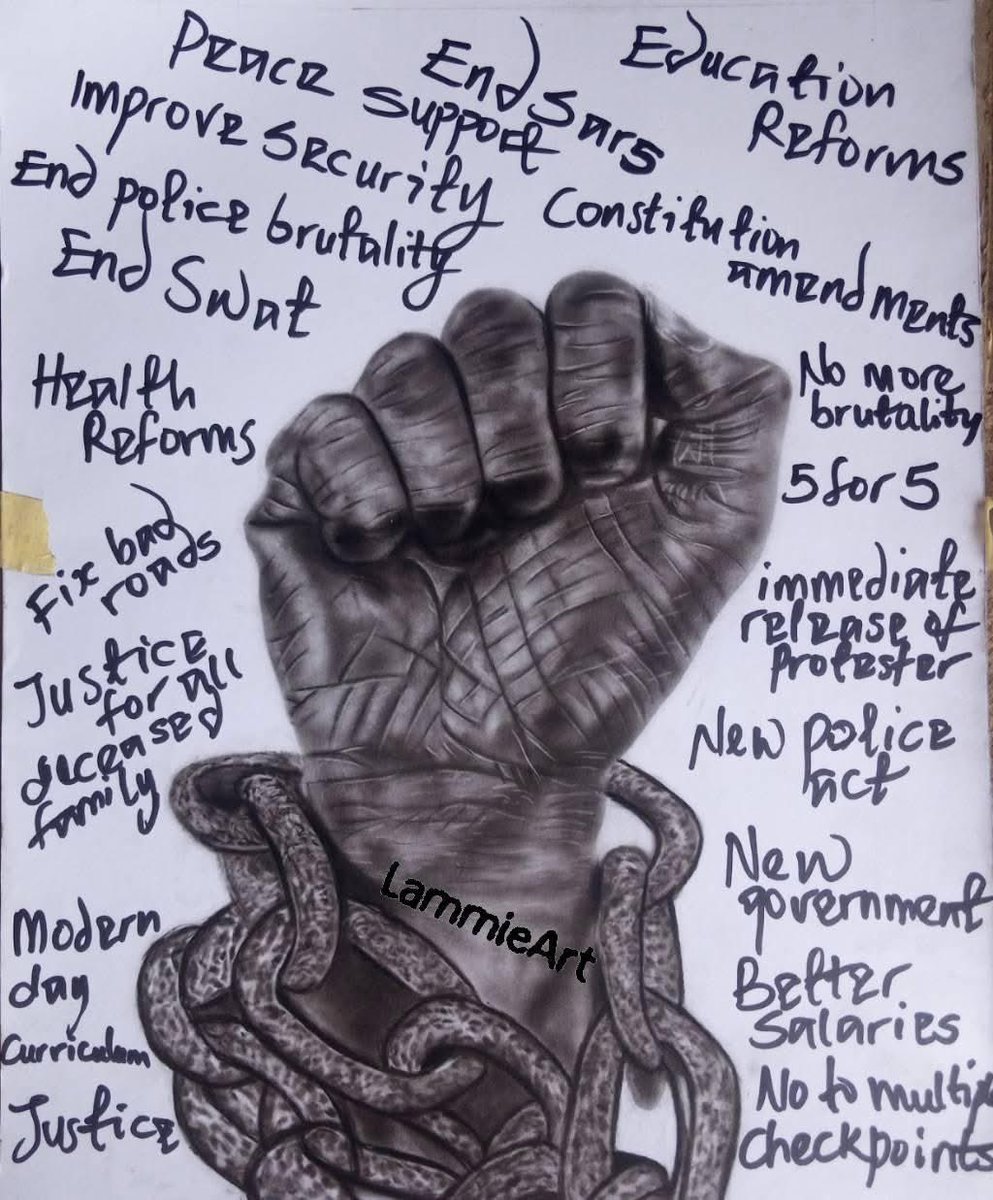 Peace
support
End
Sars
Education
Reforms
Improve security
End police brutality
End Swat
Constitution
amendments
Health
Reforms
No more
brutality
5 for 5
Fix bad
roads
immediate
release of
protester
Justice
for all
deceased
family
New police
act
LammieArt
New
government
Modern
day
Curriculum
Better
salaries
Justice
No to multiple
checkpoints